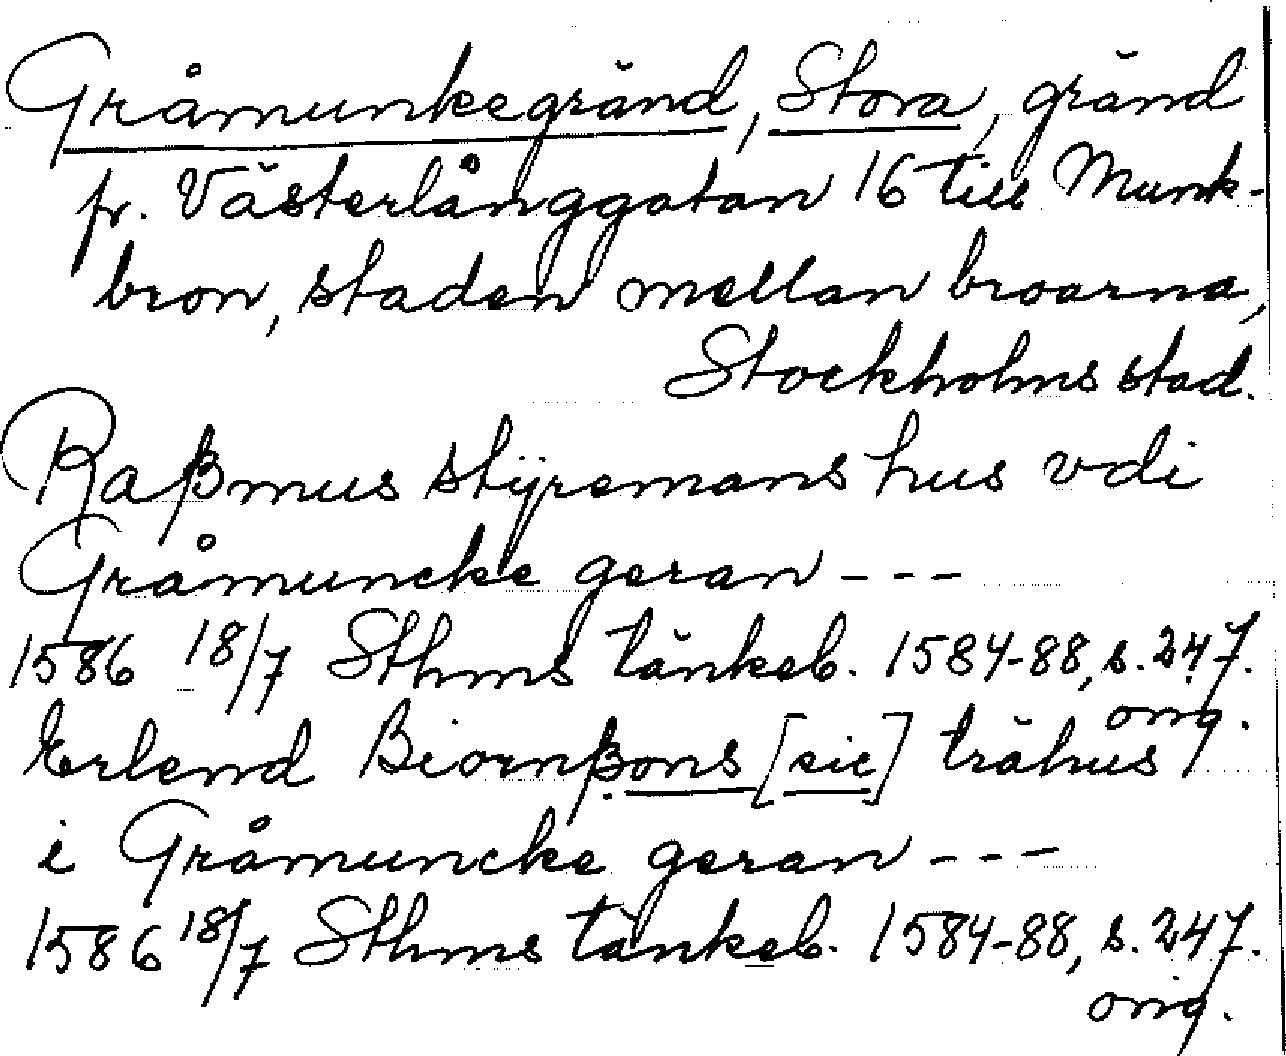 Gråmunkegränd, Stora, gränd
fr. Västerlånggatan 16 till Munk-
bron, staden mellan broarna,
Stockholms stad.
Raßmus stÿremans hus vdi
Gråmuncke geran - - -
1586 18/7 Sthms tänkeb. 1584-88, s. 247.
orig.
Erlend Biornßons [sic] trähus
i Gråmuncke geran - - -
1586 18/7 Sthms tänkeb. 1584-88, s. 247.
orig.